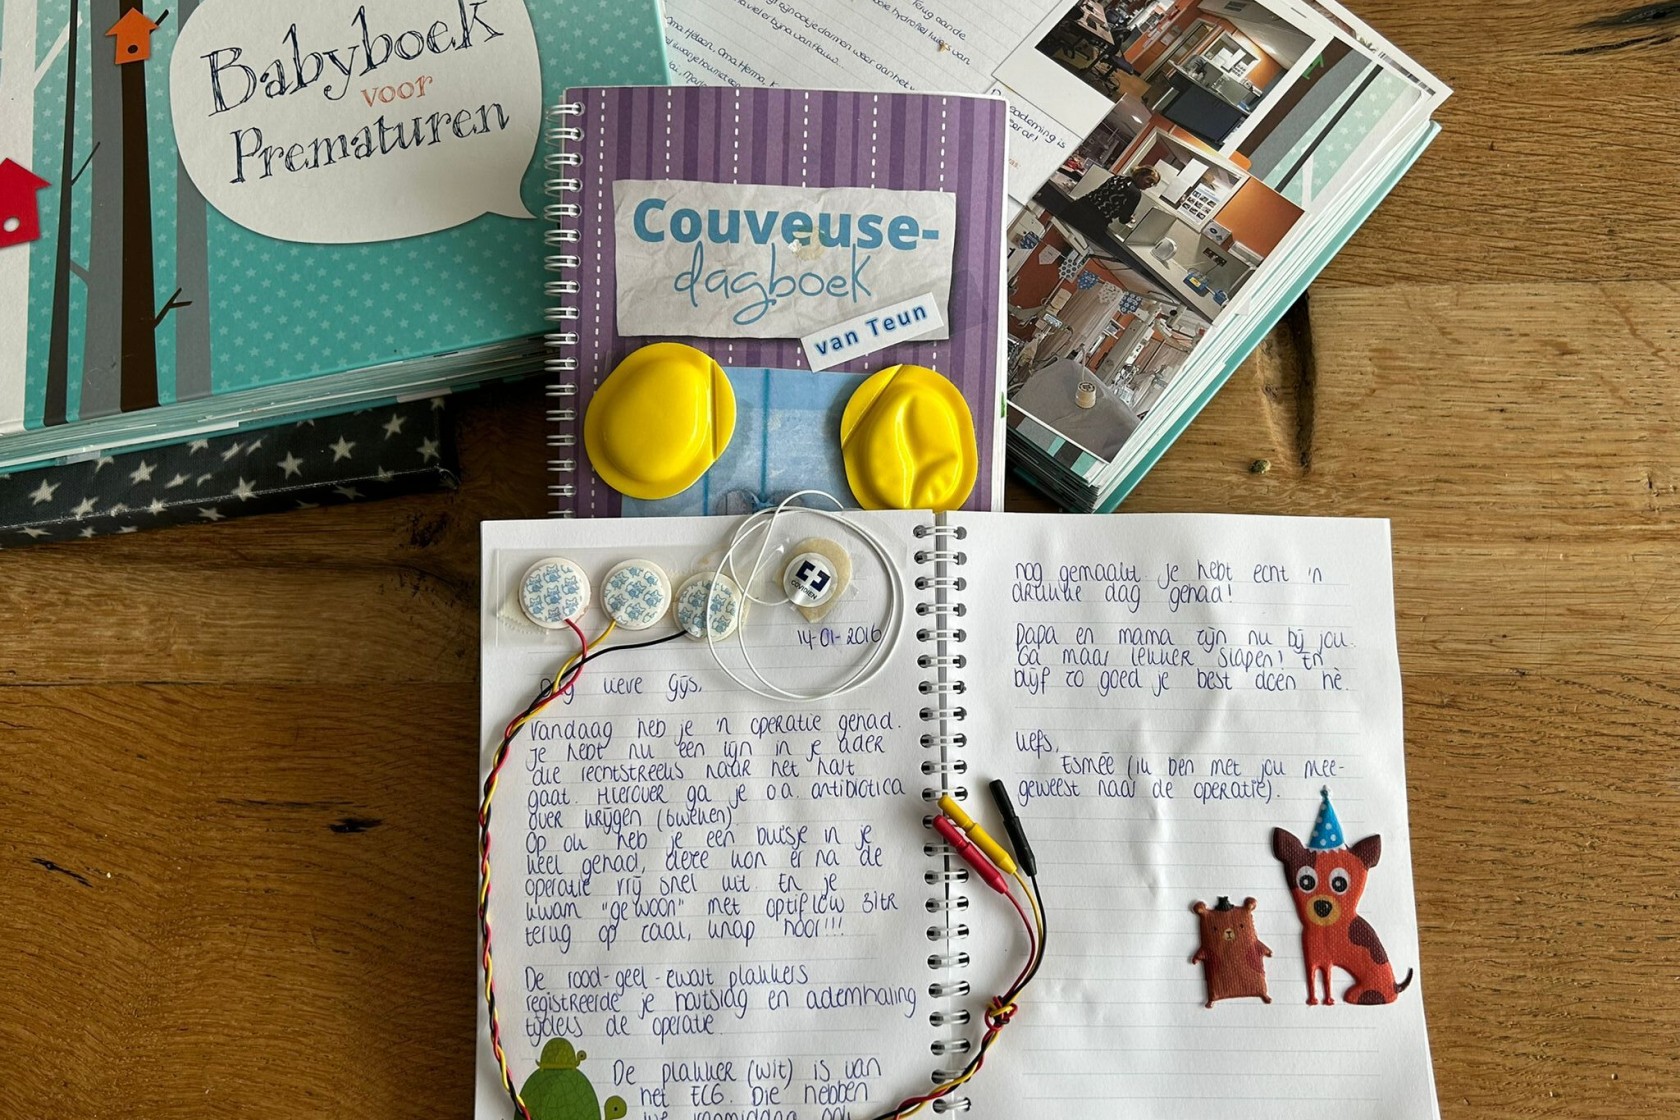 Babyboek
voor
Prematuren
Terug aan de
Oma Heleen. Oma Herma.
Couveuse-
dagboek
van Teun
COVIDIEN
14-01-2016
Dag lieve Gijs,
Vandaag heb je 'n operatie gehad.
Je hebt nu een lijn in je ader
die rechtstreeks naar het hart
gaat. Hierover ga je o.a. antibiotica
over krijgen (6 weken)
Op ok heb je een buisje in je
keel gehad, deze kon er na de
operatie vrij snel uit. En je
kwam "gewoon" met optiflow 3 ltr
terug op zaal, knap hoor!!!
De rood-geel-zwart plakkers
registreerde je hartslag en ademhaling
tijdens de operatie
De plakker (wit) is van
het ECG. Die hebben
we vanmiddag ook
nog gemaakt je hebt echt 'n
drukke dag gehad!
Papa en mama zijn nu bij jou.
Ga maar lekker slapen! En
blijf zo goed je best doen hè.
Liefs,
Esmée (ik ben met jou mee-
geweest naar de operatie).